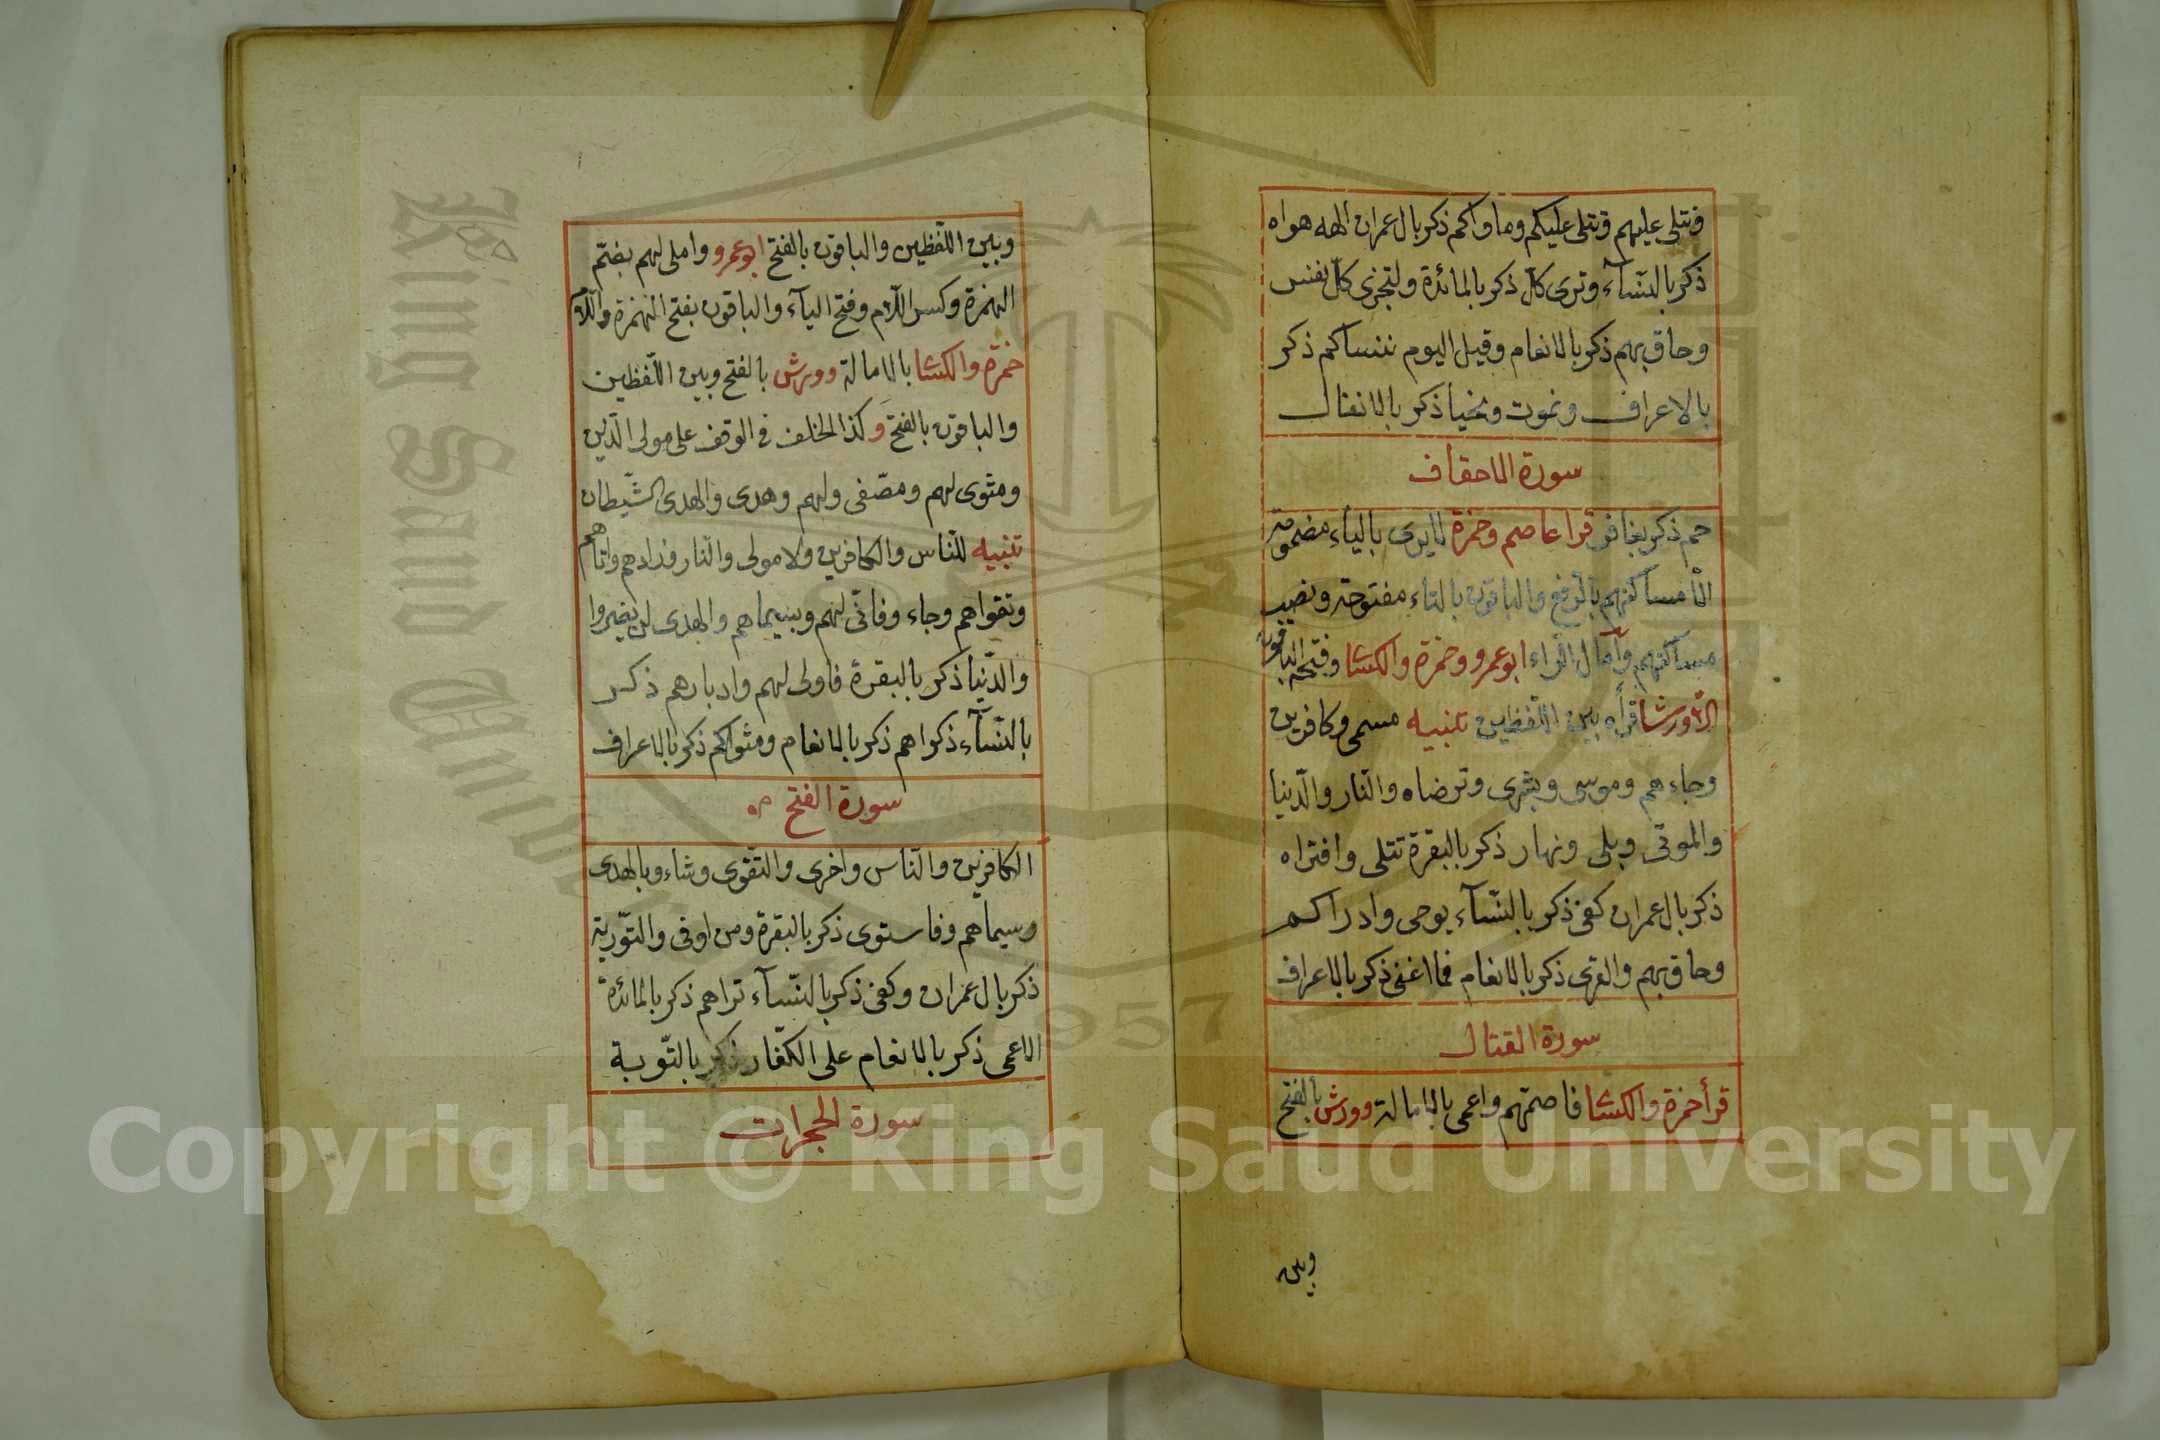 فتتلى عليهم وتتلى عليكم وماواكم ذكر بال عمران الهه هواه
ذكر بالنسآء وترى كل ذكر بالمائدة ولتجزى كل نفس
وحاق بهم ذكر بالانعام وقيل اليوم ننساكم ذكر
بالاعراف ونموت ونحيا ذكر بالانفال
سورة الاحقاف
حم ذكر بغافر قرا عاصم وحمزة لا يرى بالياء مضمومة
الا مساكنهم بالرفع والباقون بالتاء مفتوحة ونصب
مساكنهم وأمال الراء ابو عمرو وحمزة والكسا وفتحه الباقون
الا ورشا قرأه بين اللفظين تنبيه مسمى وكافرين
وجاءهم وموسى وبشرى وترضاه والنار والدنيا
والموتى وبلى ونهار ذكر بالبقرة تتلى وافتراه
ذكر بال عمران كفى ذكر بالنسآء يوحى وادراكم
وحاق بهم والقرى ذكر بالانعام فما اغنى ذكر بالاعراف
سورة القتال
قرأ حمزة والكسا فاصمهم واعمى بالامالة وورش بالفتح
وبين
وبين اللفظين والباقون بالفتح ابو عمرو واملى لهم بضم
الهمزة وكسر اللام وفتح اليآء والباقون بفتح الهمزة واللام
حمزة والكسا بالامالة وورش بالفتح وبين اللفظين
والباقون بالفتح وكذا الخلف في الوقف على مولى الذين
ومثوى لهم ومصفى ولهم وهدى والهدى الشيطان
تنبيه للناس والكافرين ولا مولى والنار فزادهم واتاهم
وتقواهم وجاء وفانى لهم وبسيماهم والهدى لن يضروا
والدنيا ذكر بالبقرة فاولى لهم وادبارهم ذكر
بالنسآء ذكراهم ذكر بالانعام ومثواكم ذكر بالاعراف
سورة الفتح
الكافرين والناس واخرى والتقوى وشاء وبالهدى
وسيماهم وفاستوى ذكر بالبقرة ومن اوفى والتورية
ذكر بال عمران وكفى ذكر بالنسآء تراهم ذكر بالمائدة
الاعمى ذكر بالانعام على الكفار ذكر بالتوبة
سورة الحجرات
King Saud University
1957
Copyright © King Saud University